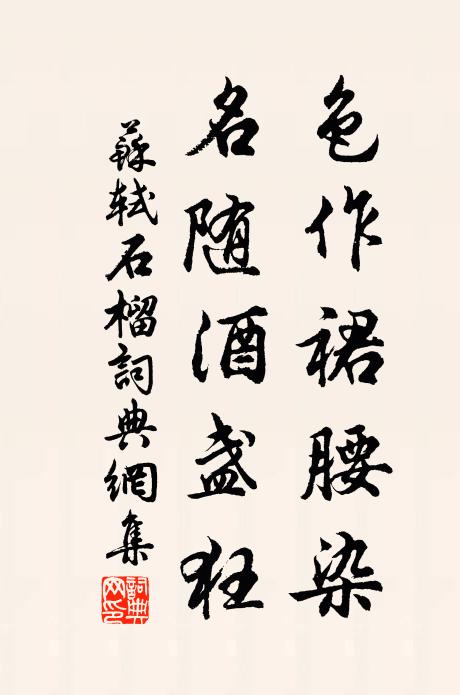 色作裙腰染
名随酒盏狂
蘇軾石榴詞典網集
詞典网印